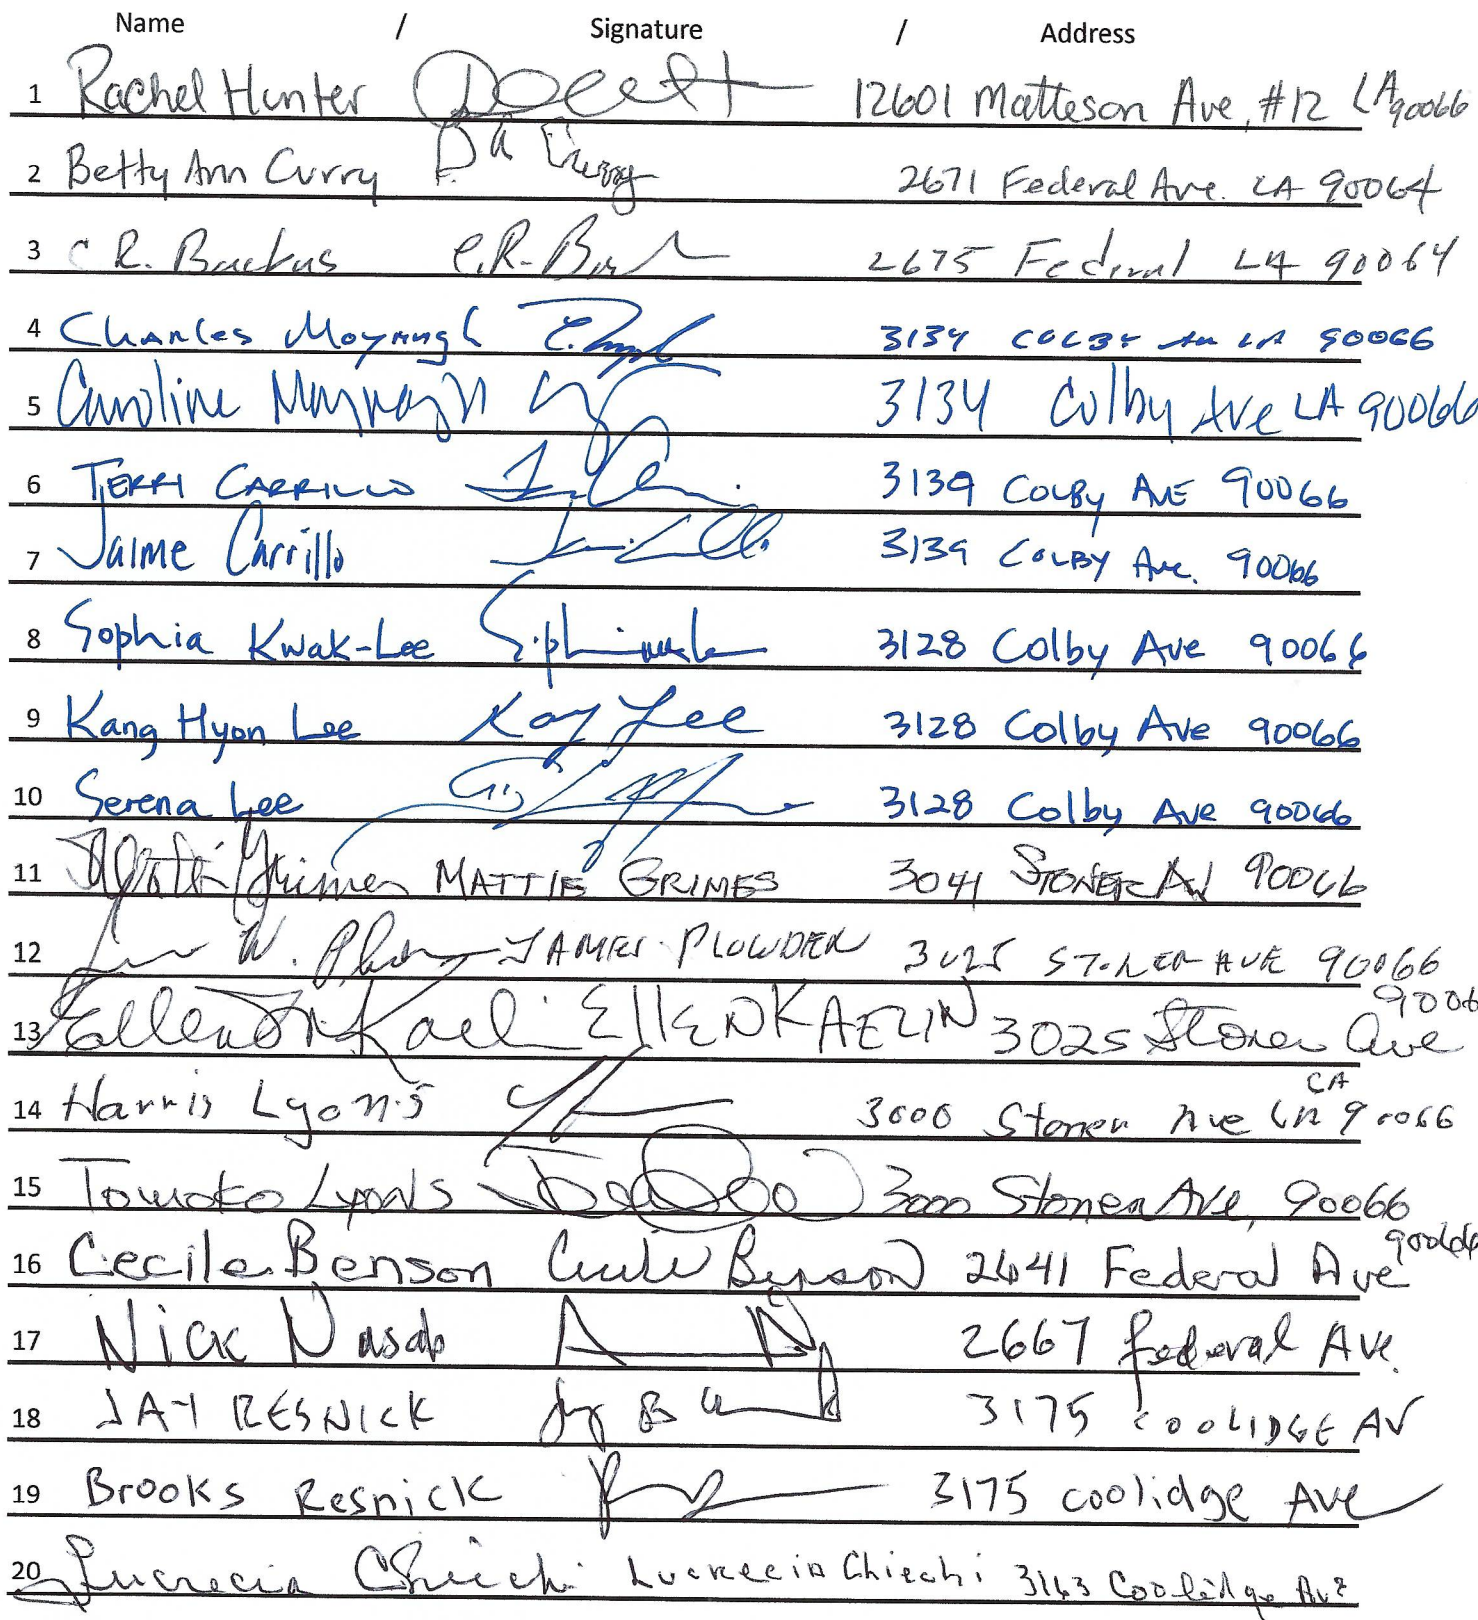 Name / Signature / Address
1 Rachel Hunter 12601 Matteson Ave, #12 LA 90066
2 Betty Ann Curry B A Curry 2671 Federal Ave. LA 90064
3 C R. Backus C.R. 2675 Federal LA 90064
4 Charles Moynagh 3134 COLBY AV LA 90066
5 Caroline Moynagh 3134 Colby Ave LA 90066
6 TERRI CARRILLO 3139 COLBY AVE 90066
7 Jaime Carrillo 3139 COLBY Ave. 90066
8 Sophia Kwak-Lee 3128 Colby Ave 90066
9 Kang Hyon Lee Kang Lee 3128 Colby Ave 90066
10 Serena Lee 3128 Colby Ave 90066
11 Mattie Grimes MATTIE GRIMES 3041 STONER AV 90066
12 W. JAMES PLOWDEN 3025 STONER AVE 90066
13 Ellen Kaelin ELLEN KAELIN 3025 Stoner Ave 9006
14 Harris Lyons 3000 Stoner Ave LA CA 90066
15 Tomoko Lyons 3000 Stoner Ave, 90066
16 Cecile Benson Cecile Benson 2641 Federal Ave 90066
17 Nick Nasab 2667 Federal Ave.
18 JAY RESNICK 3175 COOLIDGE AV
19 Brooks Resnick 3175 Coolidge Ave
20 Lucrecia Chiechi Lucrecia Chiechi 3163 Coolidge Ave